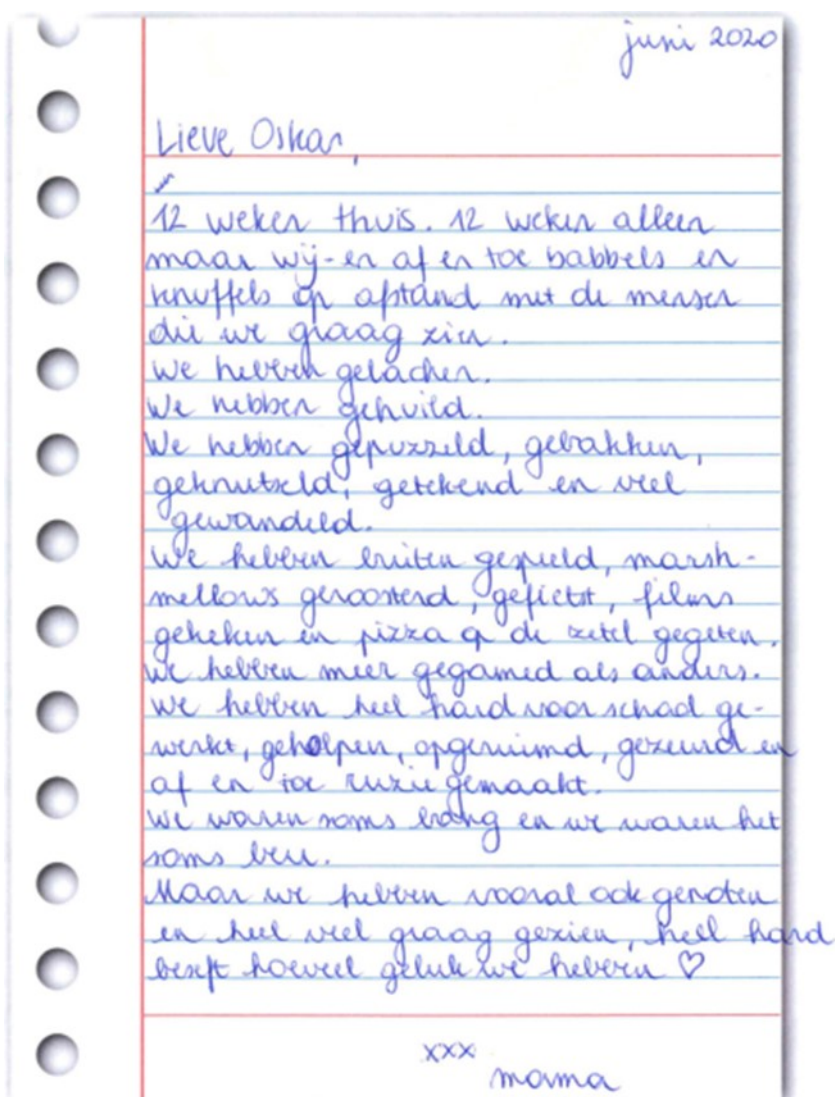 juni 2020
Lieve Oskar,
12 weken thuis. 12 weken alleen
maar wij-en af en toe babbels en
knuffels op afstand met de mensen
die we graag zien.
We hebben gelachen.
We hebben gehuild.
We hebben gepuzzeld, gebakken,
geknutseld, getekend en veel
gewandeld.
We hebben buiten gespeeld, marsh-
mellows geroosterd, gefietst, films
gekeken en pizza op de zetel gegeten.
We hebben meer gegamed als anders.
We hebben heel hard voor school ge-
werkt, geholpen, opgeruimd, gezeurd en
af en toe ruzie gemaakt.
We waren soms bang en we waren het
soms beu.
Maar we hebben vooral ook genoten
en heel veel graag gezien, heel hard
beseft hoeveel geluk we hebben ♡
xxx
mama